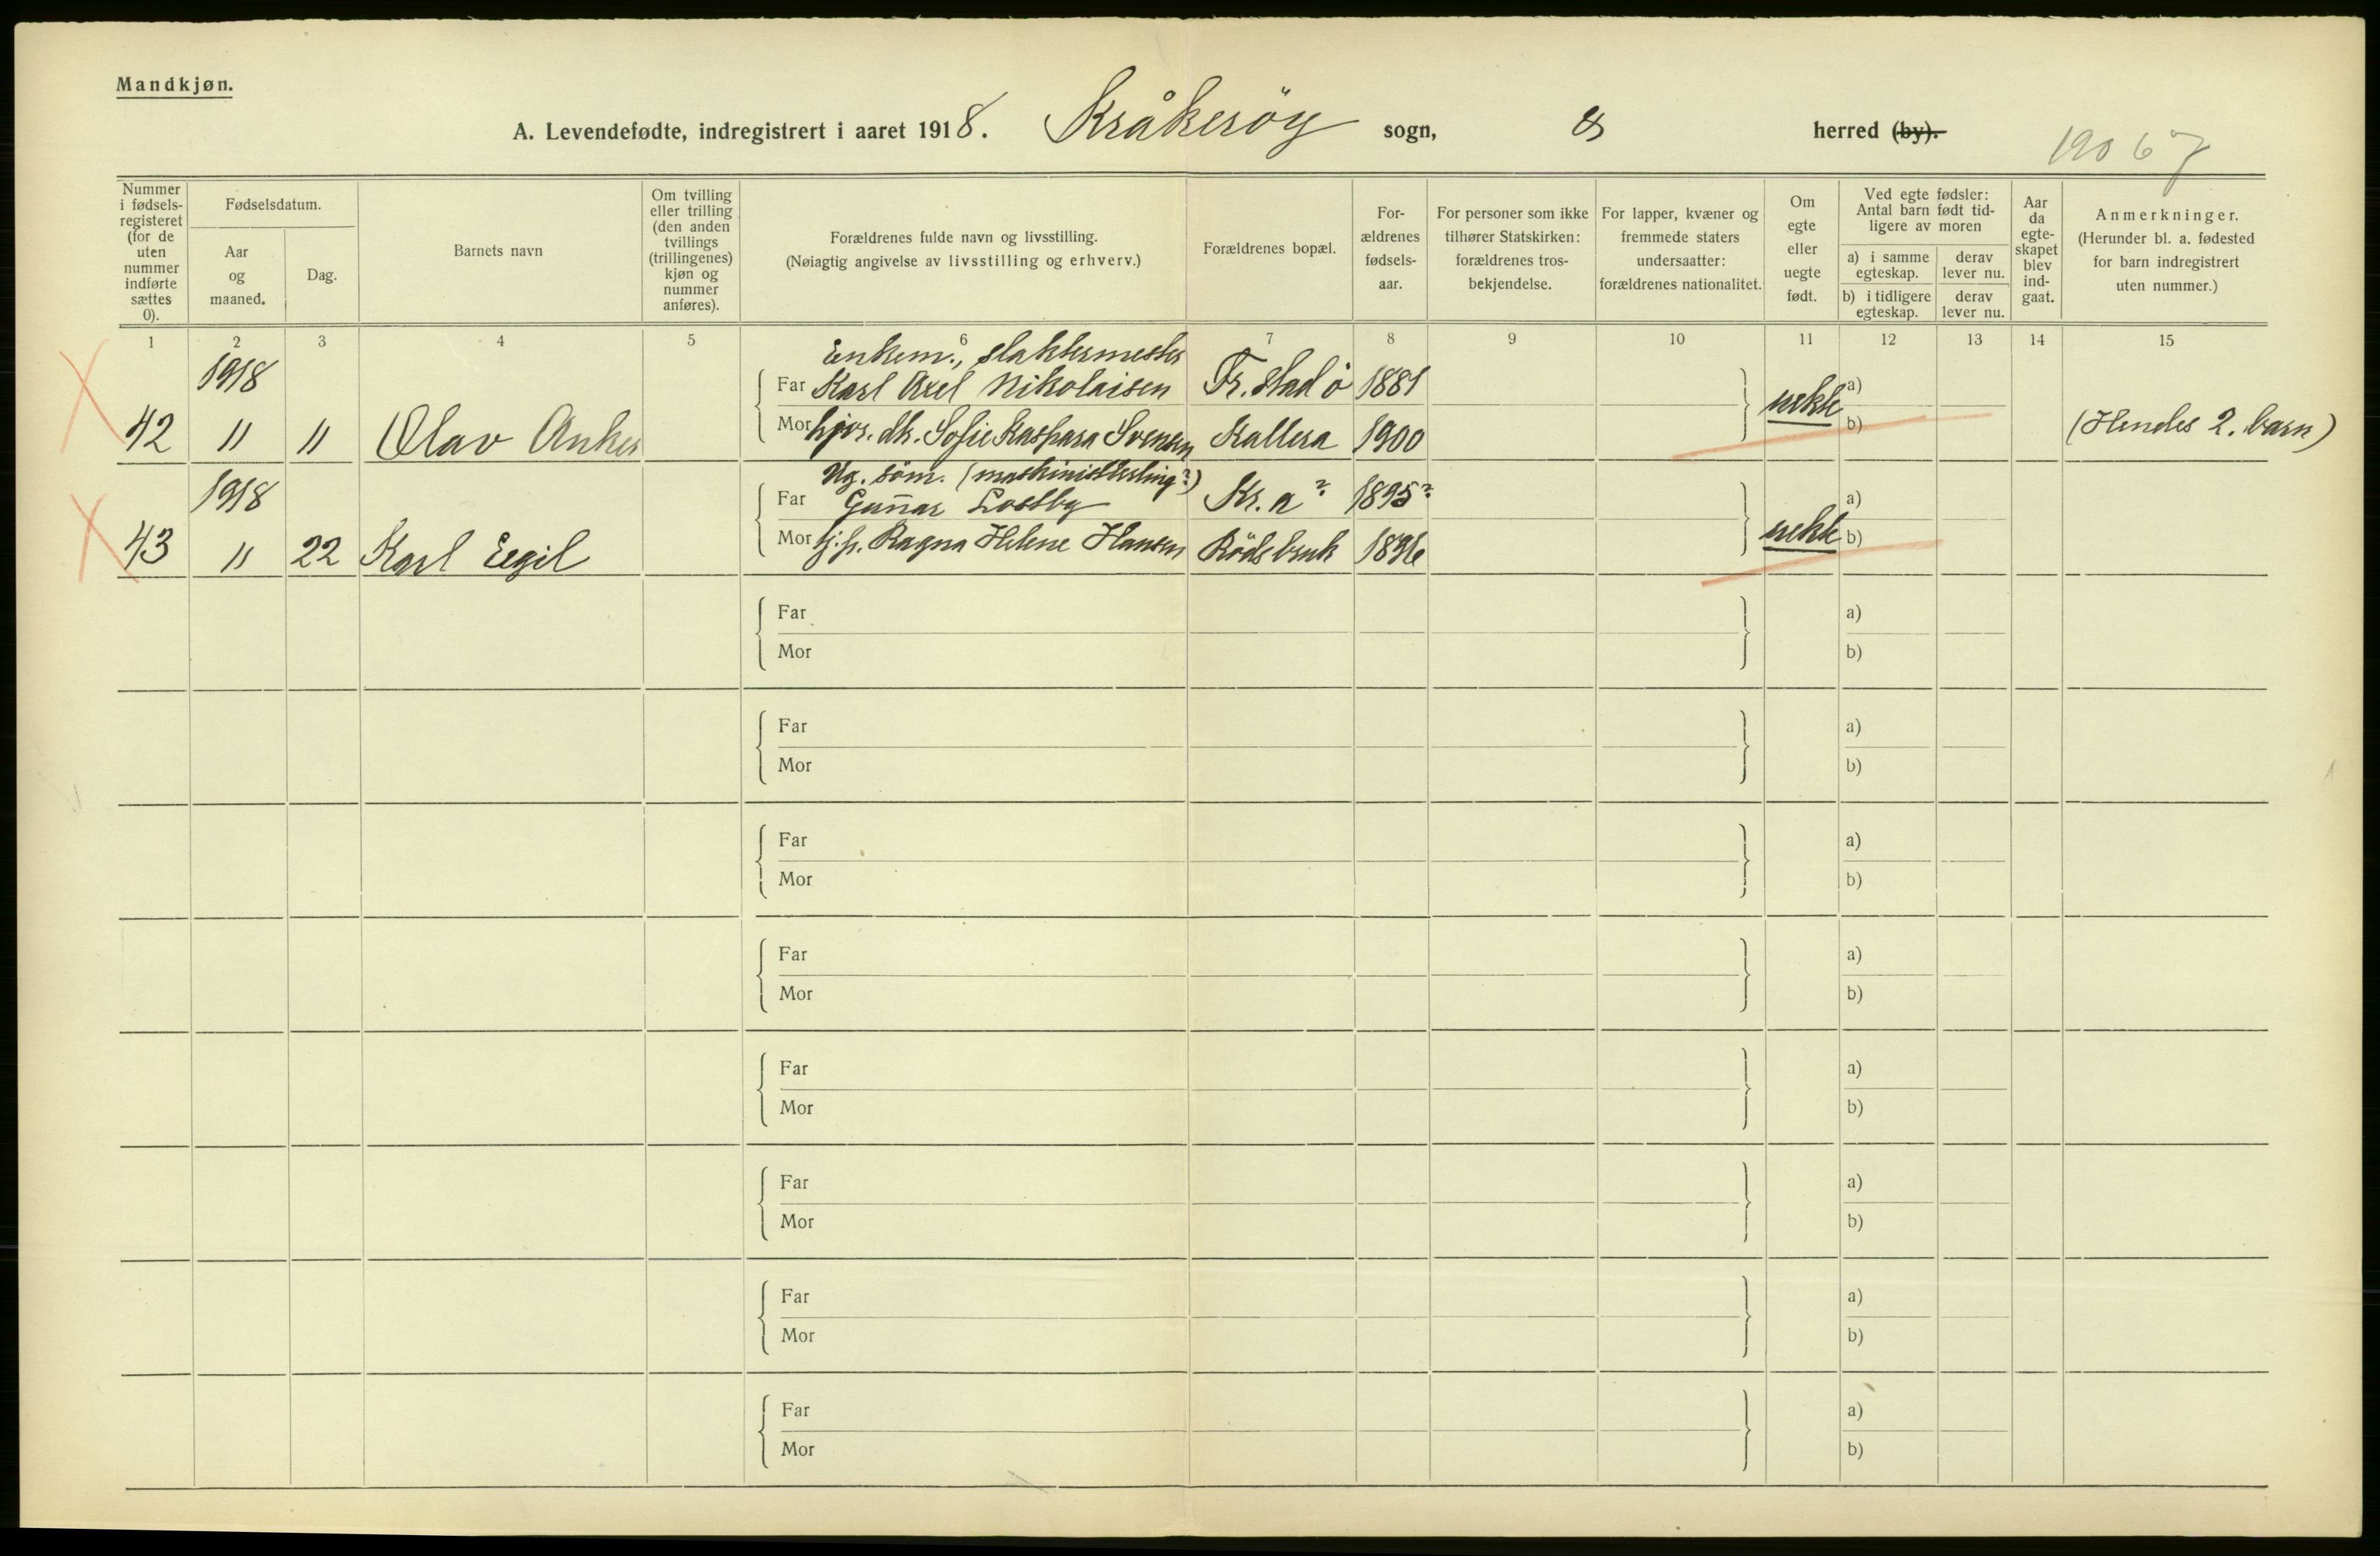 Mandkjøn.
A. Levendefødte, indregistrert i aaret 1918. Kråkeröy sogn, & herred (by).
19067
Nummer i fødsels-registeret (for de uten nummer indførte sættes 0).
Fødselsdatum.
Aar og maaned.
Dag.
Barnets navn
Om tvilling eller trilling (den anden tvillings (trillingenes) kjøn og nummer anføres).
Forældrenes fulde navn og livsstilling.
(Nøiagtig angivelse av livsstilling og erhverv.)
Forældrenes bopæl.
For-ældrenes fødsels-aar.
For personer som ikke tilhører Statskirken: forældrenes tros-bekjendelse.
For lapper, kvæner og fremmede staters undersaatter: forældrenes nationalitet.
Om egte eller uegte født.
Ved egte fødsler: Antal barn født tid-ligere av moren
a) i samme egteskap.
derav lever nu.
b) i tidligere egteskap.
derav lever nu.
Aar da egte-skapet blev ind-gaat.
Anmerkninger.
(Herunder bl. a. fødested for barn indregistrert uten nummer.)
1 2 3 4 5 6 7 8 9 10 11 12 13 14 15
1918 Enkem., slaktermester
Far Karl Axel Nikolaisen Fr.stad ö 1881 a)
42 11 11 Olav Anker Mor hjvr. dtr. Sofie Kaspara Svensen Kallera 1900 uekte b) (Hendes 2. barn)
1918 Ug. söm. (maskinistlærling?)
Far Gunnar Lostby Kr.a? 1895? a)
43 11 22 Karl Eegil Mor tj.p. Ragna Helene Hansen Rödsbruk 1896 uekte b)
Far a)
Mor b)
Far a)
Mor b)
Far a)
Mor b)
Far a)
Mor b)
Far a)
Mor b)
Far a)
Mor b)
Far a)
Mor b)
Far a)
Mor b)